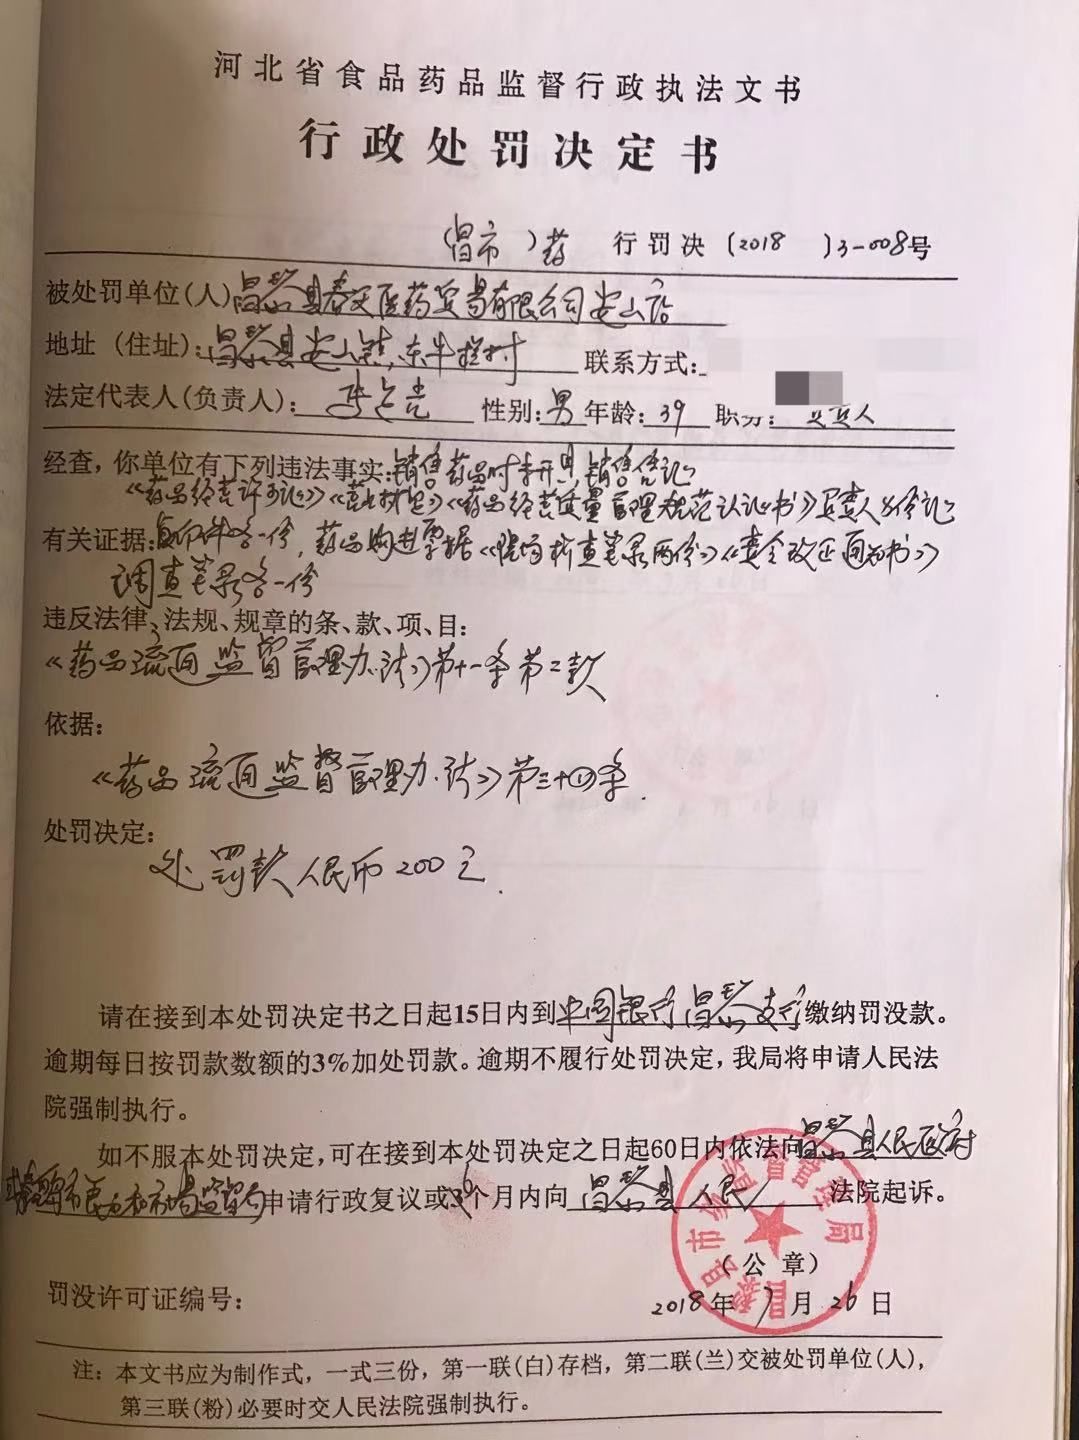 河北省食品药品监督行政执法文书
行政处罚决定书
(昌市 )药 行罚决〔2018 〕3-008号
被处罚单位(人)昌黎县春天医药贸易有限公司安山店
地址（住址）:昌黎县安山镇东牛栏村 联系方式:
法定代表人(负责人): 性别:男 年龄:39 职务: 负责人
经查，你单位有下列违法事实:销售药品时未开具销售凭证
《药品经营许可证》《营业执照》《药品经营质量管理规范认证证书》负责人身份证
有关证据:复印件各一份，药品购进票据《现场检查笔录两份》《责令改正通知书》
调查笔录各一份
违反法律、法规、规章的条、款、项、目:
《药品流通监督管理办法》第十一条第二款
依据:
《药品流通监督管理办法》第三十四条.
处罚决定:
处罚款人民币200元.
请在接到本处罚决定书之日起15日内到中国银行昌黎支行缴纳罚没款。
逾期每日按罚款数额的3%加处罚款。逾期不履行处罚决定，我局将申请人民法
院强制执行。
如不服本处罚决定，可在接到本处罚决定之日起60日内依法向昌黎县人民政府
市食品和市场监督局申请行政复议或6个月内向 昌黎县人民 法院起诉。
昌黎县市场监督管理局
（公 章）
罚没许可证编号:
2018年7月26日
注: 本文书应为制作式，一式三份，第一联(白)存档，第二联(兰)交被处罚单位(人)，
第三联(粉)必要时交人民法院强制执行。